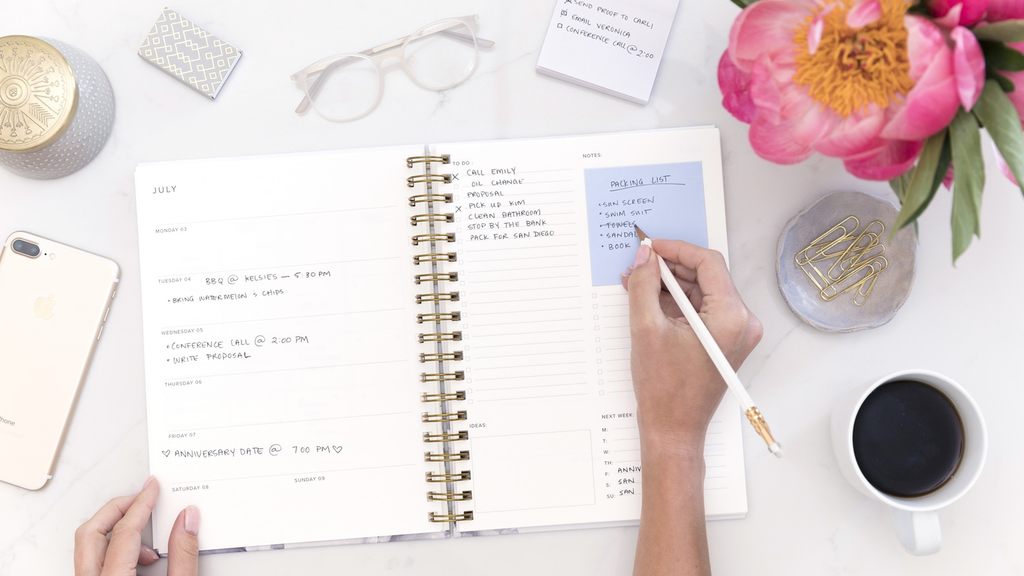 SEND PROOF TO CARLI
EMAIL VERONICA
CONFERENCE CALL @ 2:00
JULY
MONDAY 03
TUESDAY 04 BBQ @ KELSIES — 5:30 PM
• BRING WATERMELON & CHIPS
WEDNESDAY 05
• CONFERENCE CALL @ 2:00 PM
• WRITE PROPOSAL
THURSDAY 06
FRIDAY 07
♡ ANNIVERSARY DATE @ 7:00 PM ♡
SATURDAY 08 SUNDAY 09
TO DO:
X CALL EMILY
OIL CHANGE
PROPOSAL
X PICK UP KIM
CLEAN BATHROOM
STOP BY THE BANK
PACK FOR SAN DIEGO
IDEAS:
NOTES:
PACKING LIST
• SUN SCREEN
• SWIM SUIT
• TOWELS
• SANDA
• BOOK
NEXT WEEK:
M:
T:
W:
TH:
F: ANNIV
S: SAN
SU: SAN